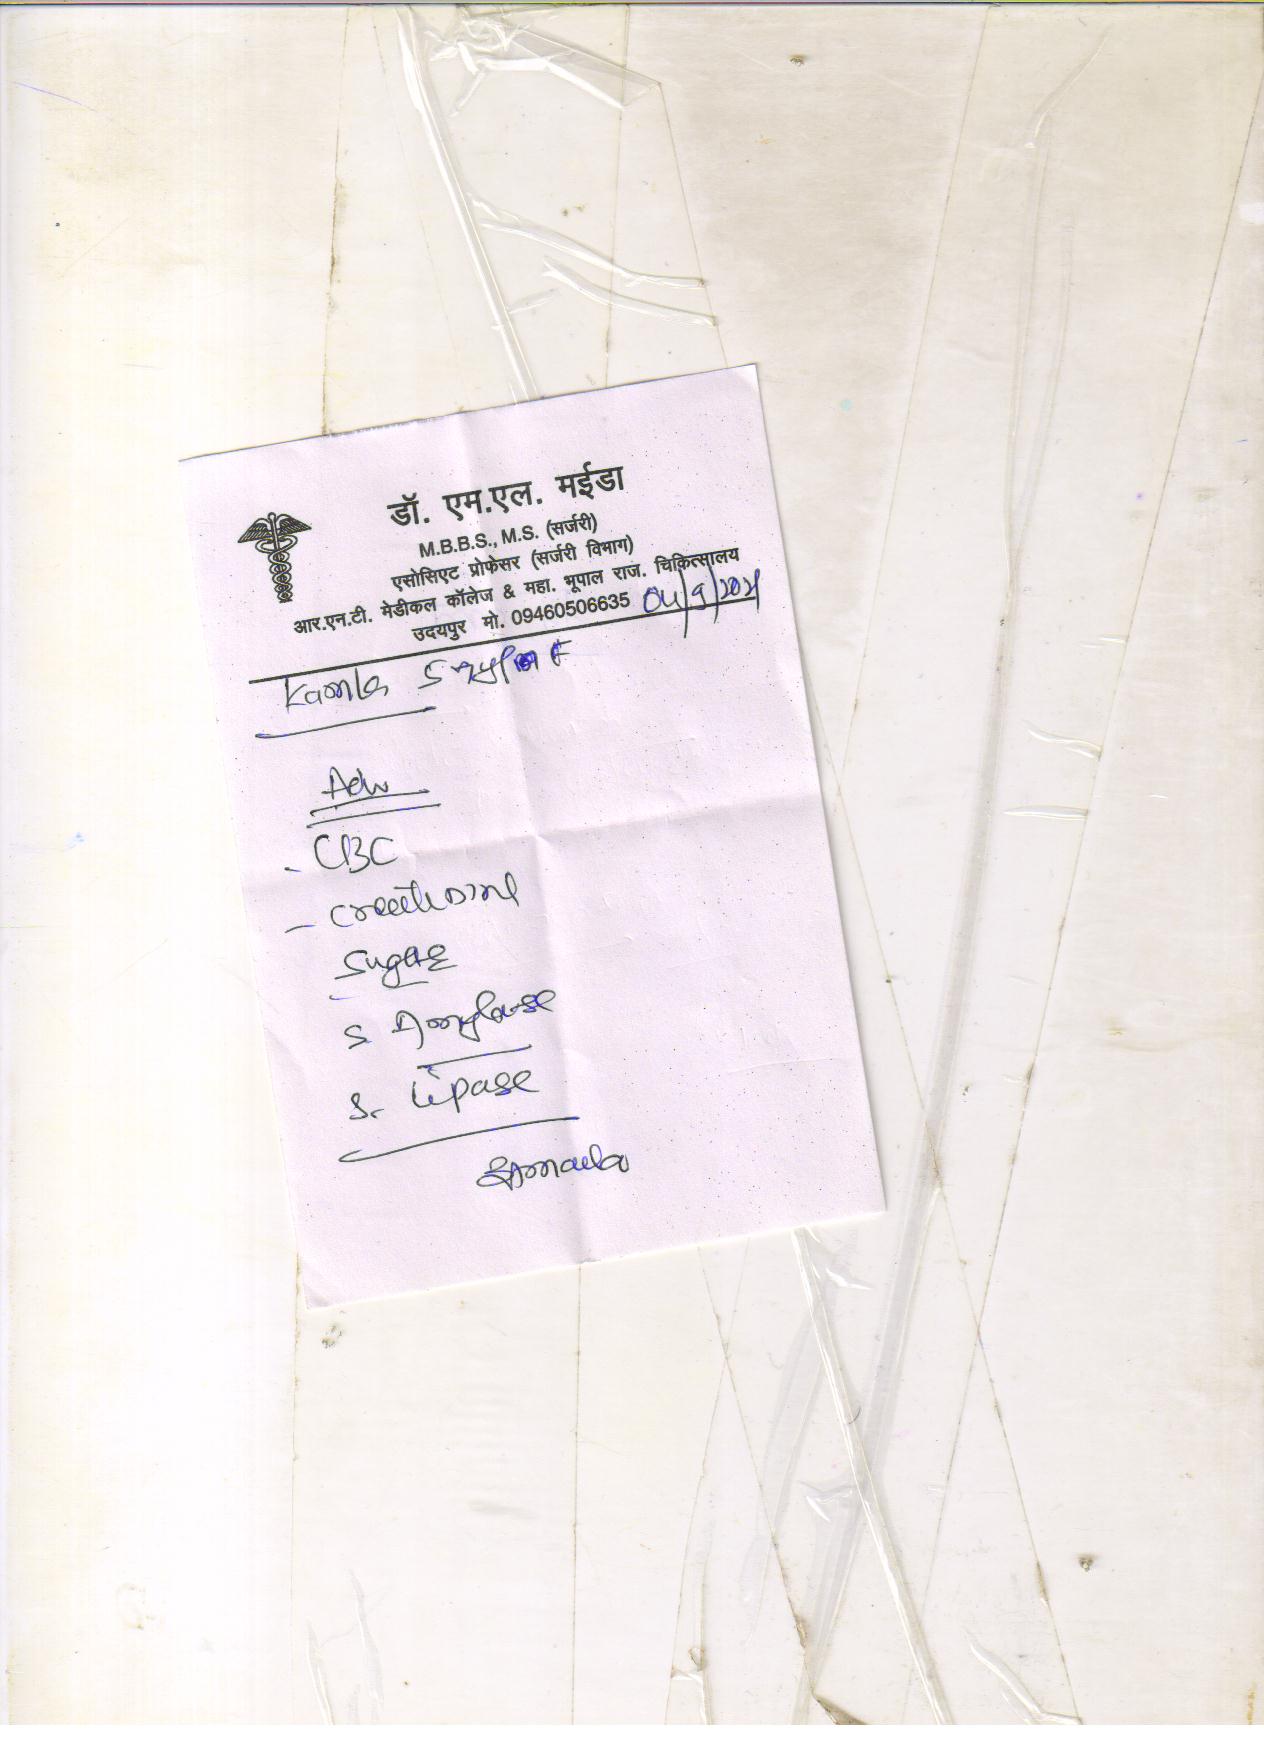 डॉ. एम.एल. मईडा
M.B.B.S., M.S. (सर्जरी)
एसोसिएट प्रोफेसर (सर्जरी विभाग)
आर.एन.टी. मेडीकल कॉलेज & महा. भूपाल राज. चिकित्सालय
उदयपुर मो. 09460506635 04/9/2021
Kamla
Adv
- CBC
- Creatinine
Sugar
S. Amylase
S. Lipase